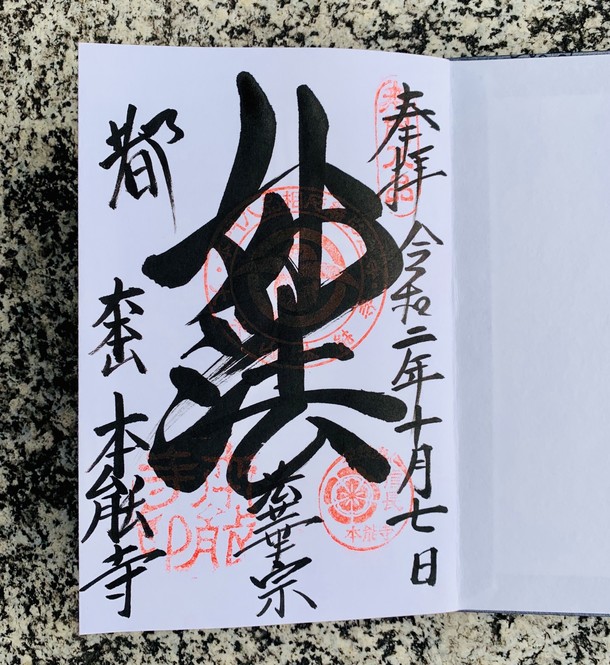 奉拝
令和二年十月七日
信長
本能寺
妙法
法華宗
都
大本山
本能寺